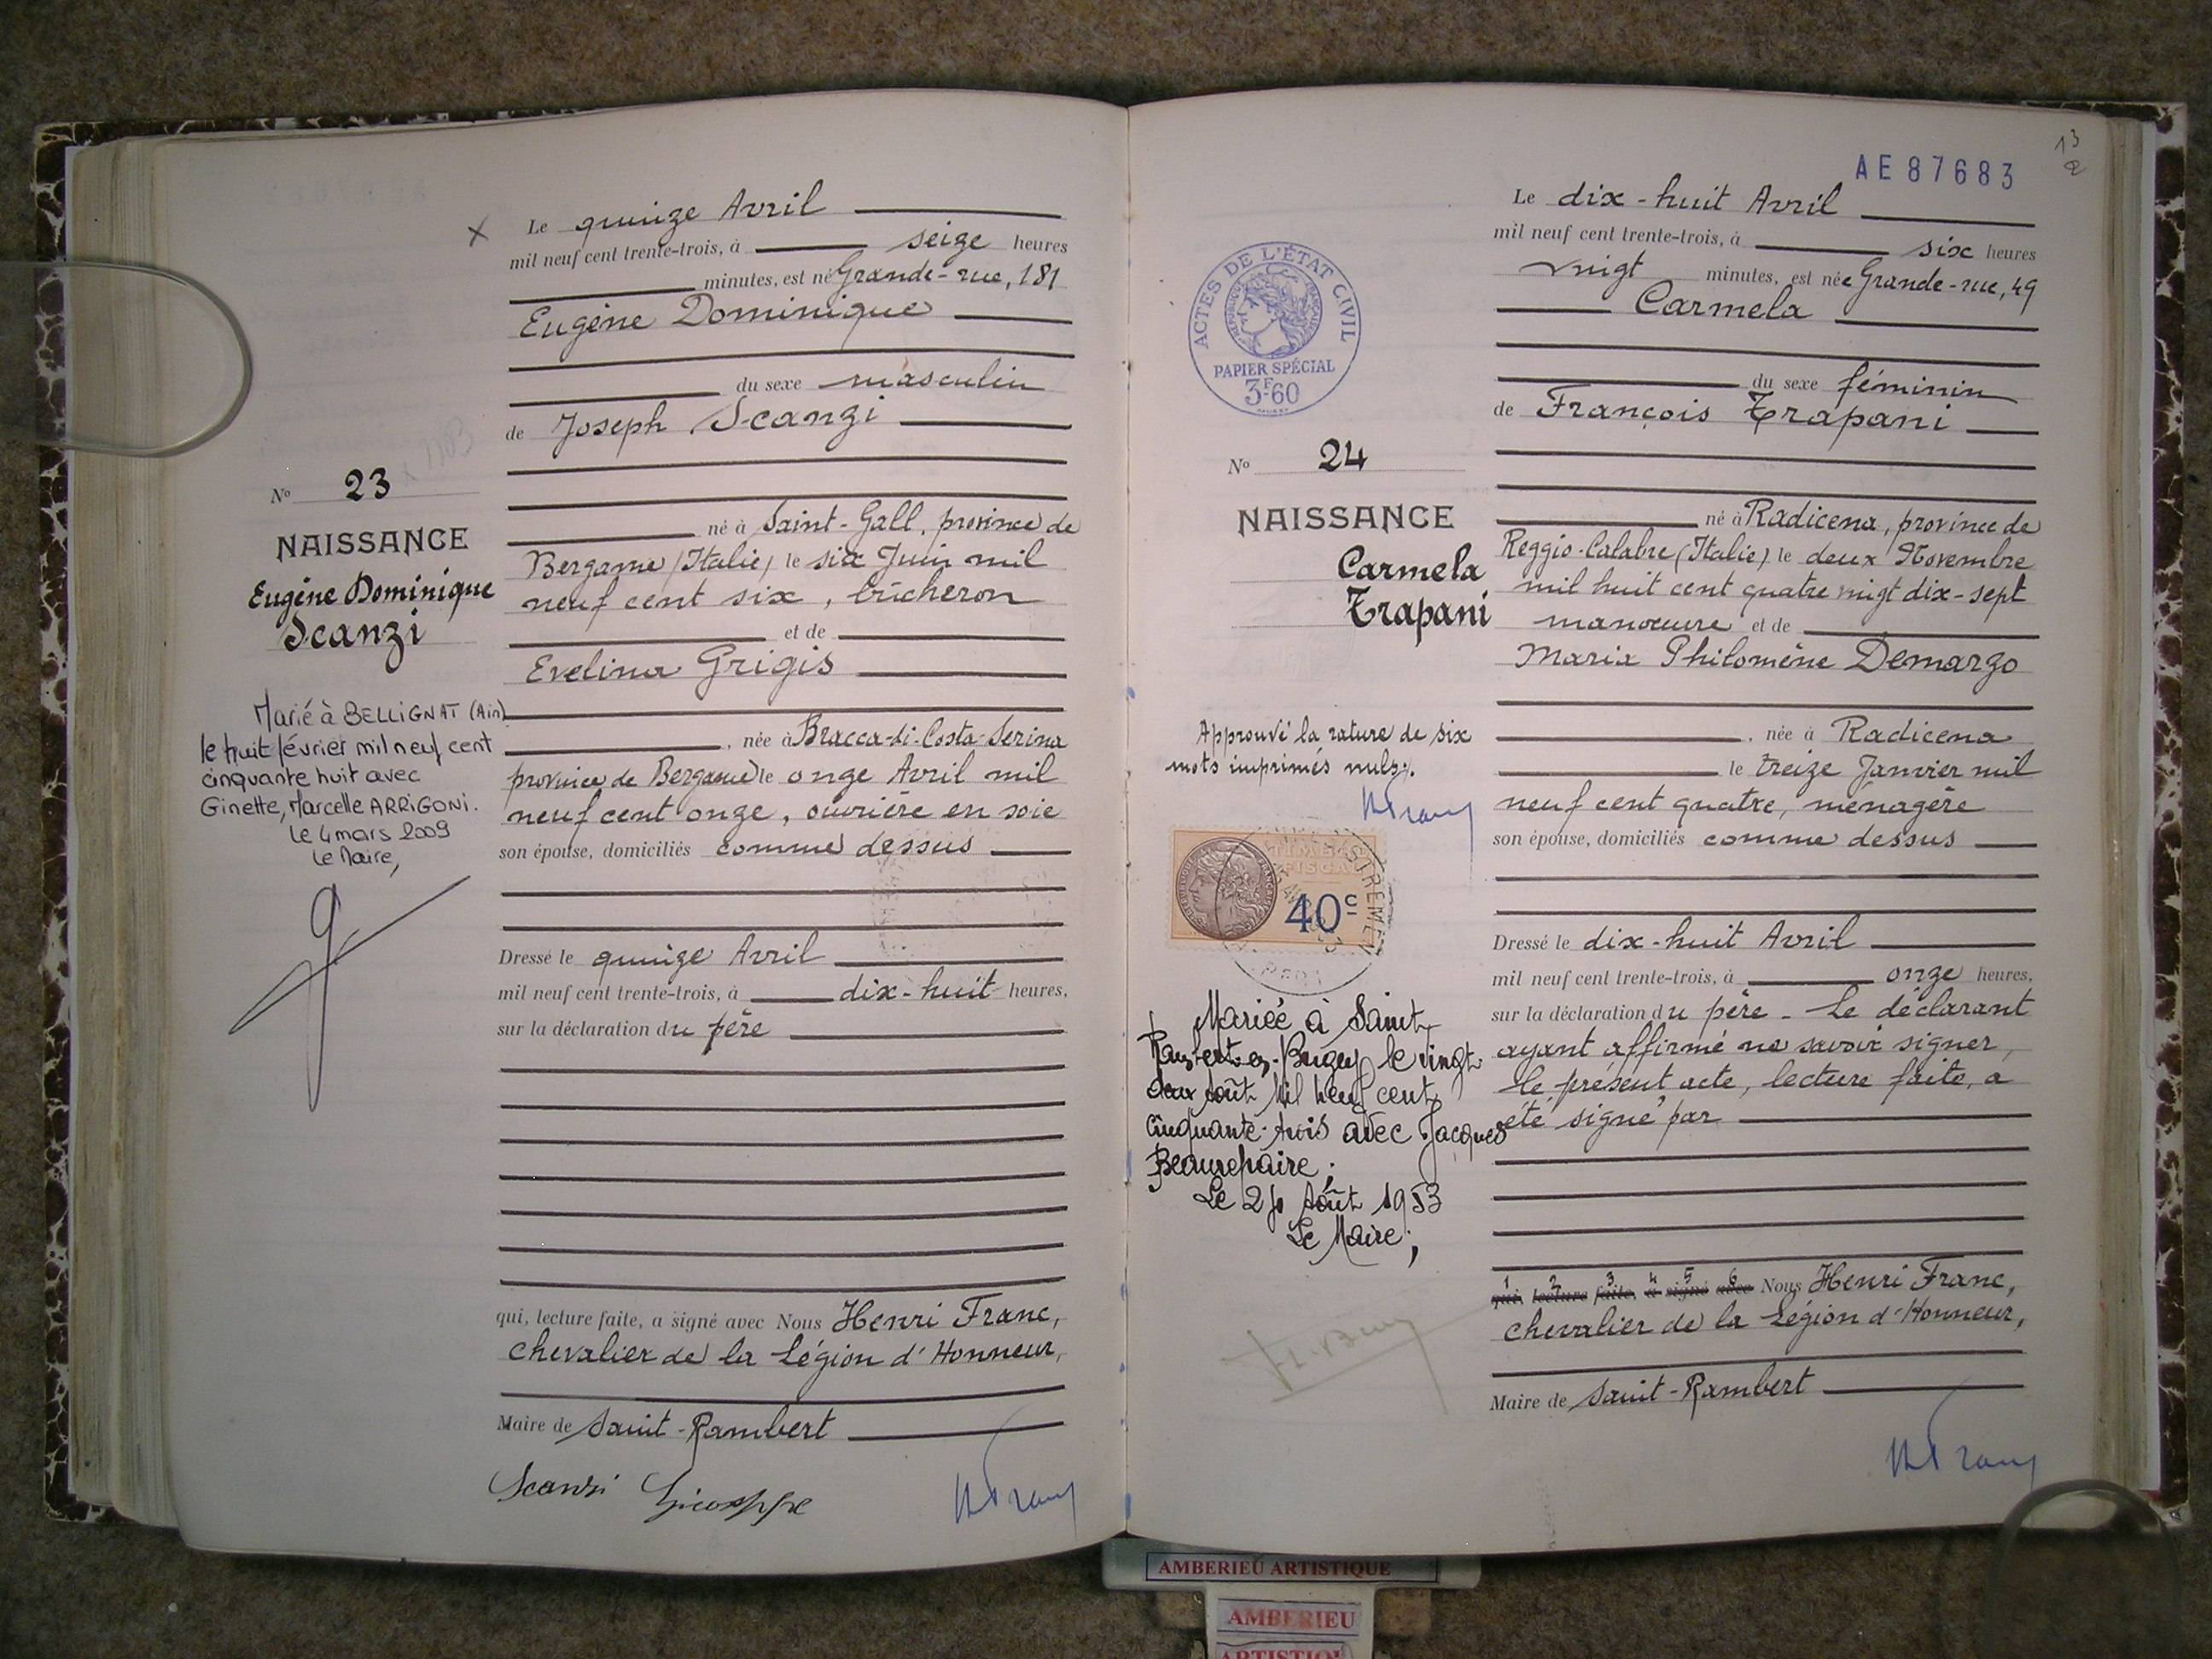 Le quinze Avril
mil neuf cent trente-trois, à seize heures
minutes, est né Grande-rue, 181
Eugène Dominique
du sexe masculin
de Joseph Scanzi
né à Saint-Gall, province de
Bergame (Italie) le six Juin mil
neuf cent six, bûcheron
et de
Evelina Grigis
, née à Bracca-di-Costa-Serina
province de Bergame) le onze Avril mil
neuf cent onze, ouvrière en soie
son épouse, domiciliés comme dessus
Dressé le quinze Avril
mil neuf cent trente-trois, à dix-huit heures,
sur la déclaration du père
qui, lecture faite, a signé avec Nous Henri Franc,
chevalier de la Légion d'Honneur,
Maire de Saint-Rambert
Scanzi Giuseppe
No 23
NAISSANCE
Eugène Dominique
Scanzi
Marié à BELLIGNAT (Ain)
le huit février mil neuf cent
cinquante huit avec
Ginette, Marcelle ARRIGONI.
Le 4 mars 2009
Le Maire,
13
AE87683
Le dix-huit Avril
mil neuf cent trente-trois, à six heures
vingt minutes, est née Grande-rue, 49
Carmela
du sexe féminin
de François Trapani
né à Radicena, province de
Reggio-Calabre (Italie) le deux Novembre
mil huit cent quatre vingt dix-sept
manœuvre et de
Maria Philomène Demargo
, née à Radicena
le treize Janvier mil
neuf cent quatre, ménagère
son épouse, domiciliés comme dessus
Dressé le dix-huit Avril
mil neuf cent trente-trois, à onze heures,
sur la déclaration du père - Le déclarant
ayant affirmé ne savoir signer,
le présent acte, lecture faite, a
été signé par
1 2 3 4 5 6
qui, lecture faite, a signé avec Nous Henri Franc,
chevalier de la Légion d'Honneur,
Maire de Saint-Rambert
ACTES DE L'ÉTAT CIVIL
RÉPUBLIQUE FRANÇAISE
PAPIER SPÉCIAL
3F60
No 24
NAISSANCE
Carmela
Trapani
Approuvé la rature de six
mots imprimés nuls.
TIMBRE
FISCAL
40c
Mariée à Saint
Rambert-en-Bugey le vingt
deux Août Mil neuf cent
Cinquante-trois avec Jacques
Beaurepaire;
Le 24 Août 1953
Le Maire;
AMBERIEU ARTISTIQUE
AMBERIEU
ARTISTIQUE